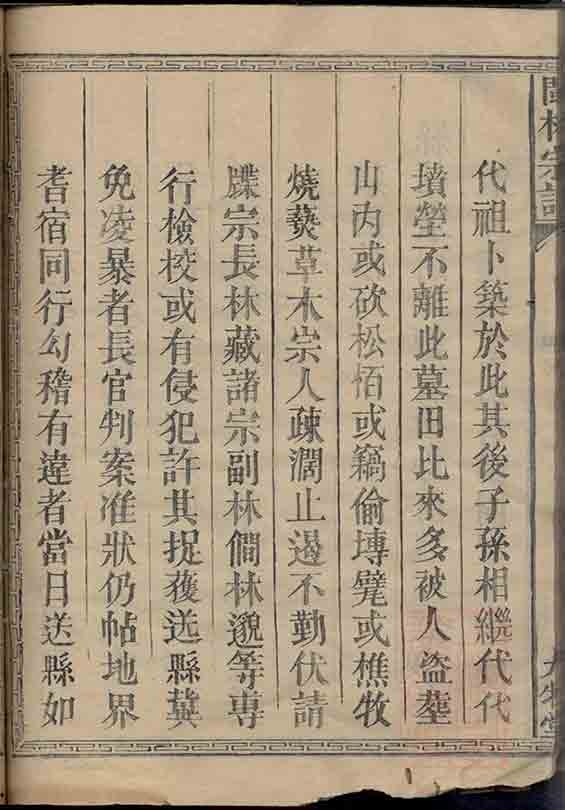 閩林宗譜
代祖卜築於此其後子孫相繼代代
墳塋不離此墓田比來多被人盜塟
山內或砍松栢或竊偷塼甓或樵牧
燒爇草木宗人疎濶止遏不勤伏請
牒宗長林藏諸宗副林僩林邈等專
行檢校或有侵犯許其捉獲送縣冀
免凌暴者長官判案准狀仍帖地界
耆宿同行勾稽有違者當日送縣如
九牧堂